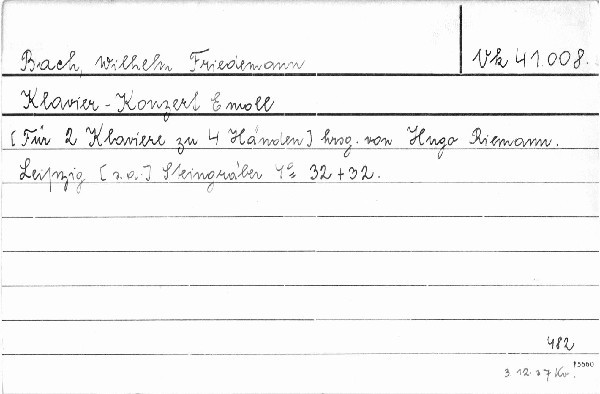 Bach, Wilhelm Friedemann
Vk 41.008.
Klavier-Konzert Emoll
[Für 2 Klaviere zu 4 Händen] hrsg. von Hugo Riemann.
Leipzig [s.a.] Steingräber 4° 32+32.
482
3.12.37 Kv.